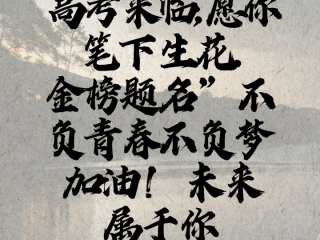 高考来临,愿你
笔下生花
金榜题名”不
负青春不负梦
加油！未来
属于你